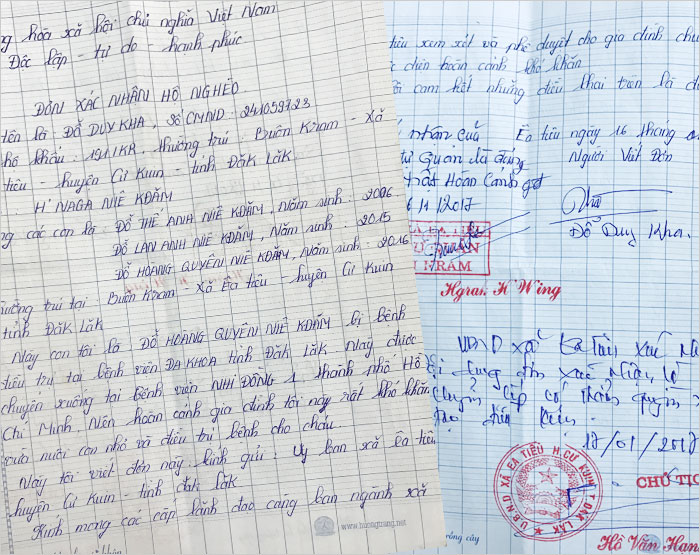 ng hòa xã hội chủ nghĩa Việt Nam
Độc lập - tự do - hạnh phúc
ĐƠN XÁC NHÂN HÔ NGHÈO
tên là ĐỖ DUY KHA, Số CMND: 241059723
hô khẩu: 1911KR. thường trú: Buôn Kram - Xã
tiêu - huyện Cư Kuin - tỉnh Đăk Lăk.
H' NAGA NIÊ KDĂM
ng các con là: ĐỖ THẾ ANH NIÊ KDĂM, Năm sinh: 2006
ĐỖ LAN ANH NIÊ KDĂM, Năm sinh: 2015
ĐỖ HOÀNG QUYÊN NIÊ KDĂM, Năm sinh: 2016
thường trú tại Buôn Kram - Xã Êa tiêu - huyện Cư Kuin
tỉnh Đăk Lăk
Nay con tôi là ĐỖ HOÀNG QUYÊN NIÊ KDĂM bị bệnh
điều trị tại bệnh viện ĐA KHOA tỉnh Đăk Lăk Nay được
chuyên xuống tại Bệnh viện NHI ĐỒNG 1, thành phố Hồ
Chí Minh. Nên hoàn cảnh gia đình tôi nay rất khó khăn
vừa nuôi con nhỏ và điều trị bệnh cho cháu.
Nay tôi viết đơn này kính gửi: Uỷ ban xã Êa tiêu
huyện Cư Kuin - tỉnh đăk lăk
Kính mong các cấp lãnh đạo cùng ban ngành xã
www.huongtrang.net
tiêu xem xét và phê duyệt cho gia đình chú
diện hoàn cảnh khó khăn
cam kết những điều khai trên là đú
nhân của
Êa tiêu ngày 16 tháng
Người Viết Đơn
tự Quản là đúng
thật Hoàn Cảnh
11/2017
Đỗ Duy Kha.
QUẢN
KRAM
Hgrah H' Wing
UBND xã Ea Tiêu xác
dung đơn xác nhận
cấp có thẩm quyền
17/01/2017
U.B.N.D XÃ EA TIÊU H. CƯ KUIN T. ĐĂK LĂK
CHỦ TỊC
Hồ Văn Han